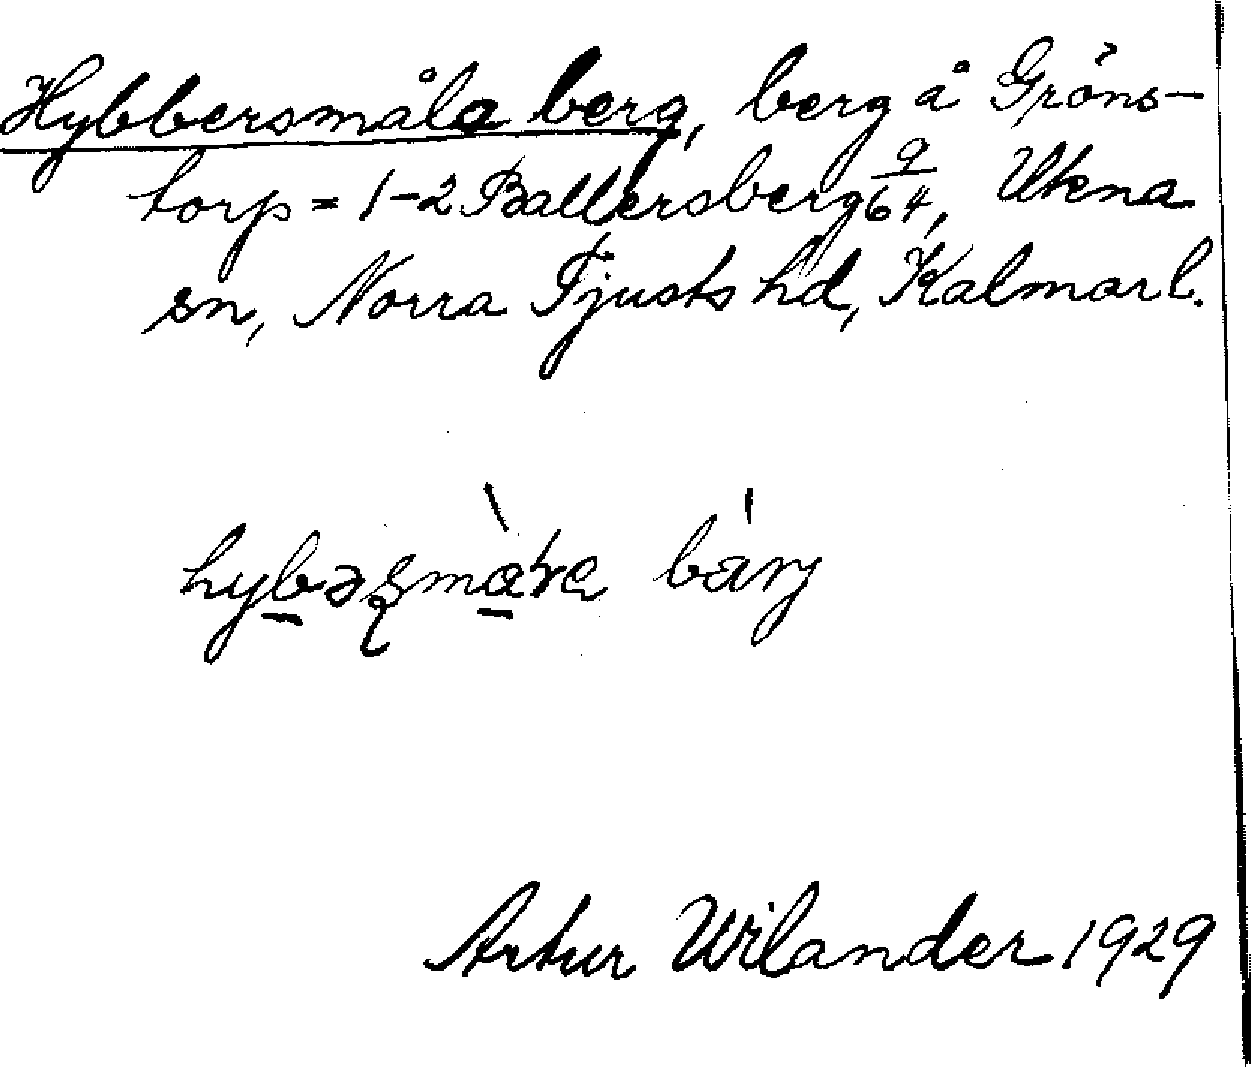 Hybbersmåla berg, berg å Gröns-
torp = 1-2 Ballersberg 9/64, Ukna
sn, Norra Tjusts hd, Kalmar l.
bärj
Artur Wilander 1929